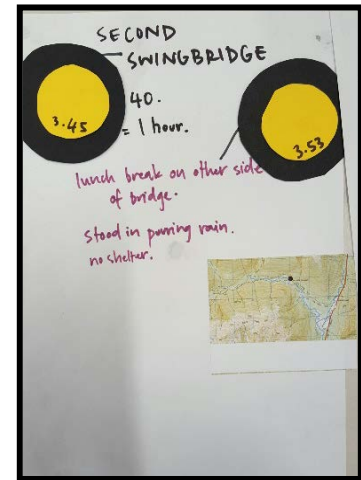 SECOND
SWINGBRIDGE
3.45
40.
= 1 hour.
3.53
lunch break on other side
of bridge.
stood in purring rain.
no shelter.